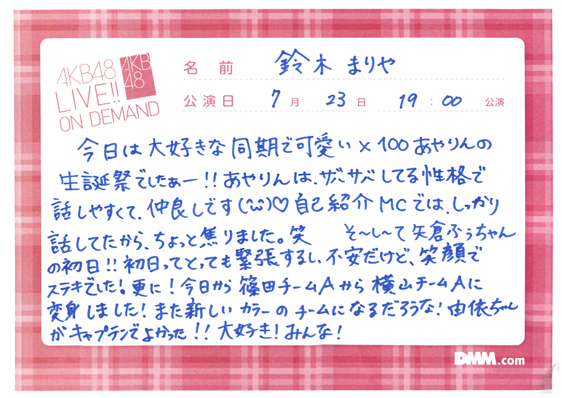 AKB48
LIVE!!
ON DEMAND
AKB
48
名前 鈴木まりや
公演日 7月 23日 19:00 公演
今日は大好きな同期で可愛い×100あやりんの
生誕祭でしたぁー!!あやりんは、サバサバしてる性格で
話しやすくて、仲良しです(¨̮)♡自己紹介MCでは、しっかり
話してたから、ちょっと焦りました。笑 そ〜し〜て矢倉ふぅちゃん
の初日!!初日ってとっても緊張するし、不安だけど、笑顔で
ステキでした。更に!今日から篠田チームAから横山チームAに
変身しました!また新しいカラーのチームになるだろうな!由依ちゃん
がキャプテンでよかった!!大好き!みんな!
DMM.com